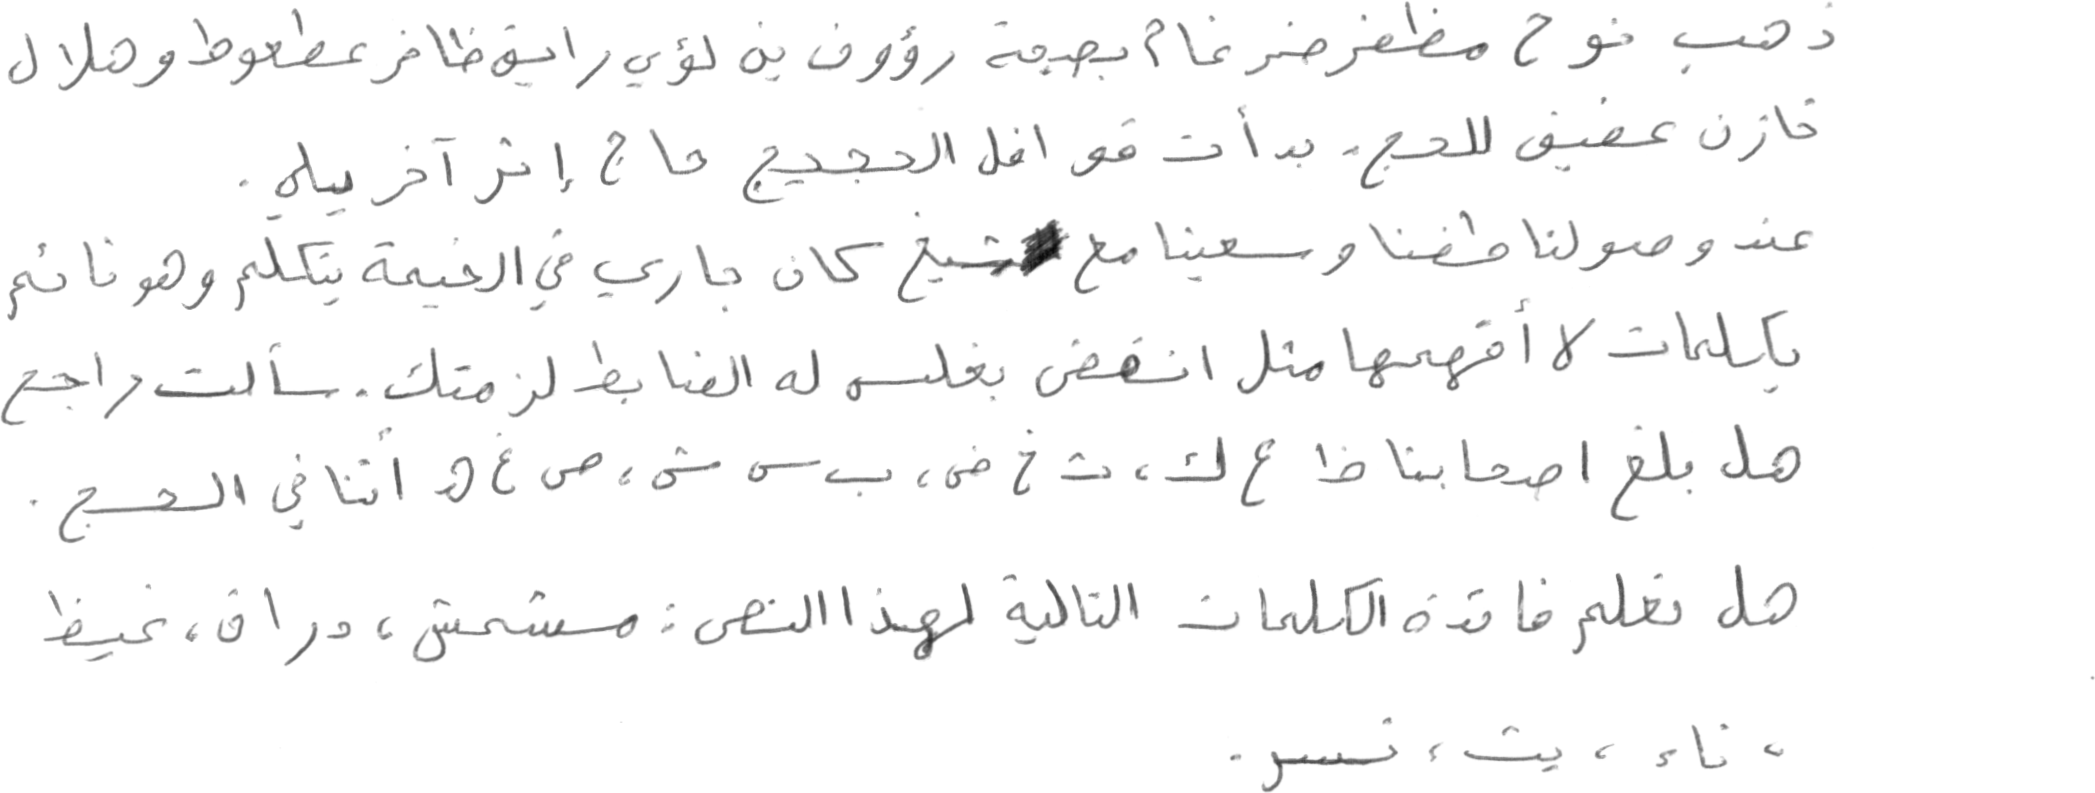 ذهب نوح مظفر ضرغام بصحبة رؤوف بن لؤي رايق ظافر عطعوط وهلال
خازن عفيف للحج. بدأت قوافل الحجيج حاج إثر آخر يياه.
عند وصولنا طفنا وسعينا مع شيخ كان جاري في الخيمة يتكلم وهو نائم
بكلمات لا أفهمها مثل انقض بغلس له الضابط لزمتك. سألت راجح
هل بلغ اصحابنا ظ ع ك، ث خ ض، ب س ش، ص غ ه أننا في الحج.
هل تعلم فائدة الكلمات التالية لهذا النص: مشمش، دراق، غيظ
، ناء، يث، نسر.